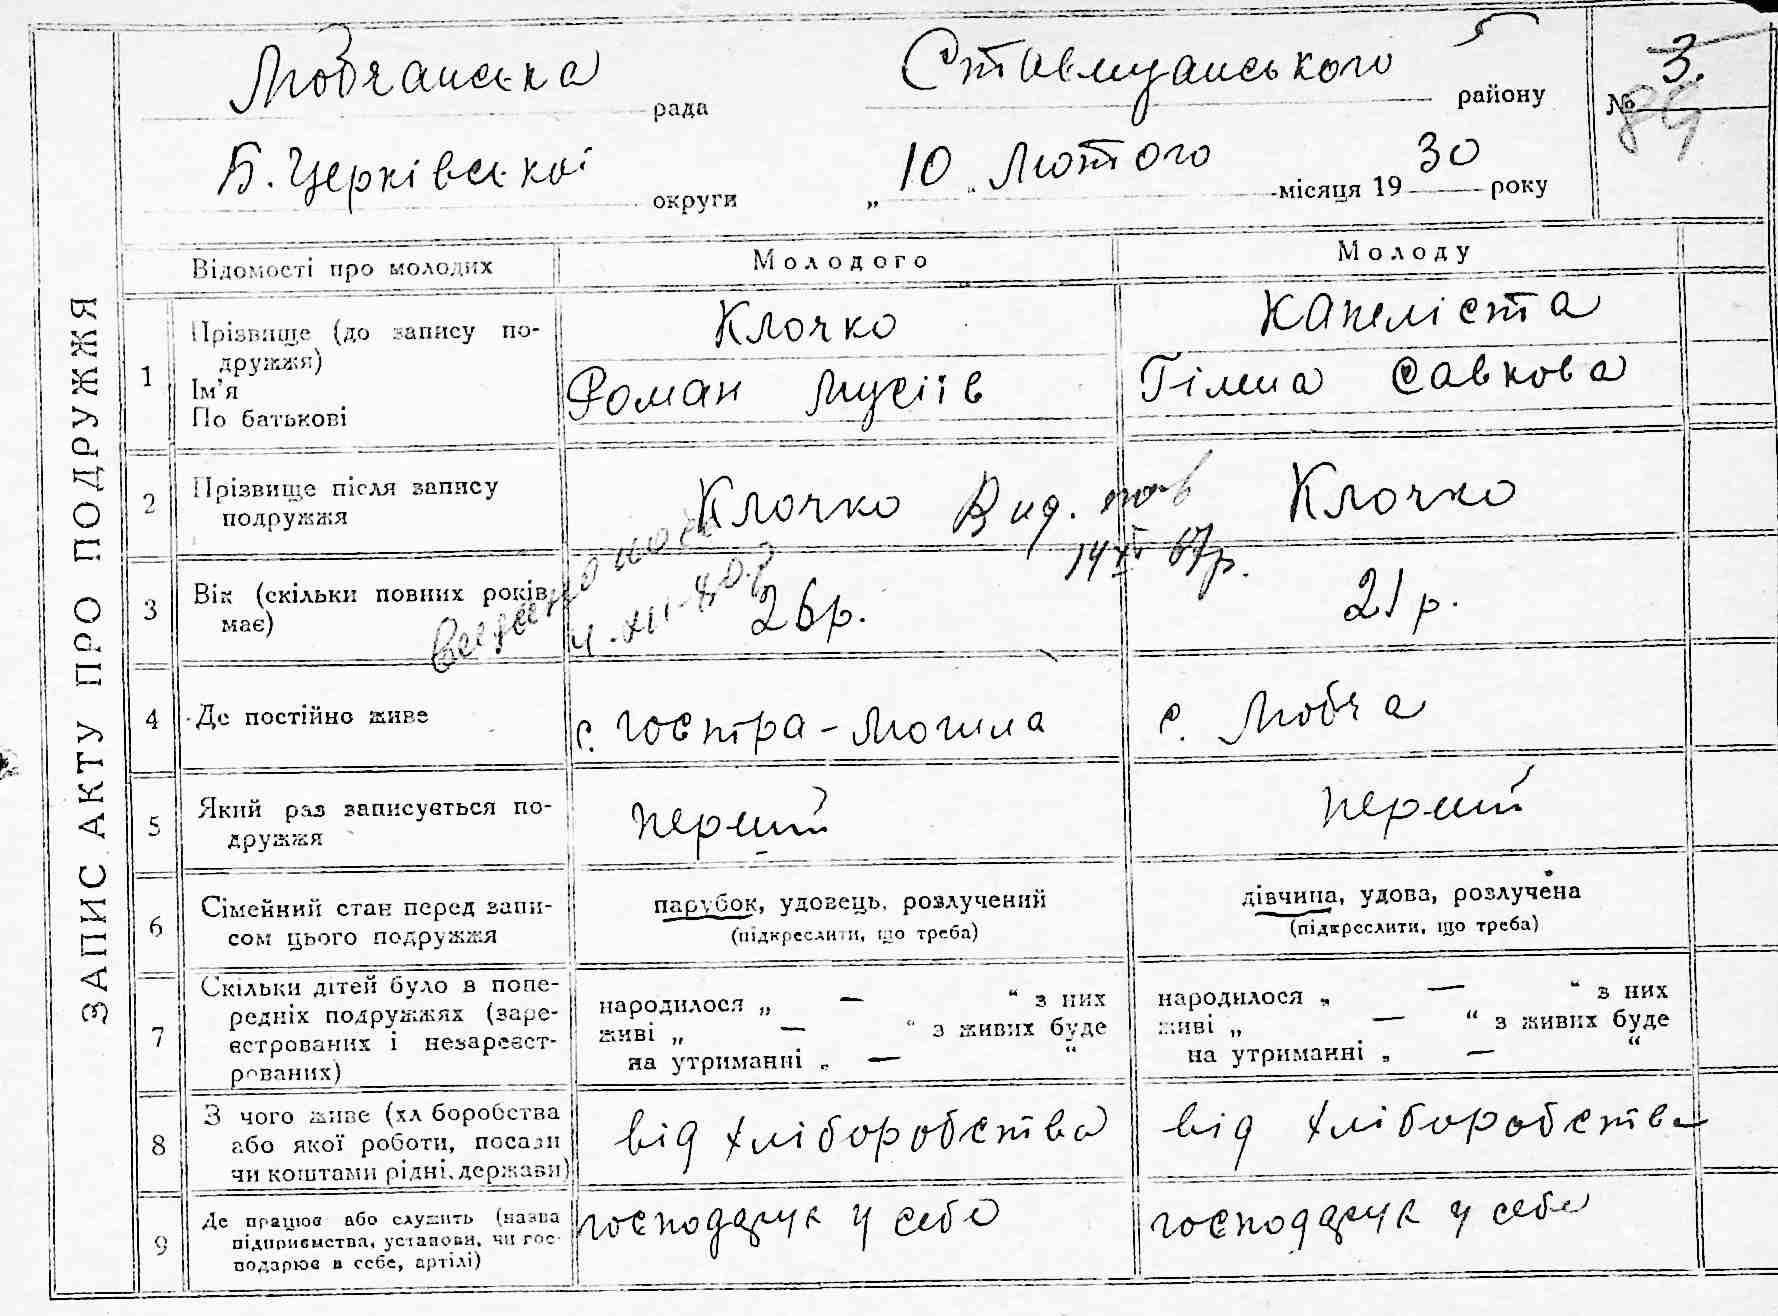 ЗАПИС АКТУ ПРО ПОДРУЖЖЯ
Любчанська рада Ставищанського району № 3.
84
Б. Церківської округи „ 10 " Лютого місяця 19 30 року
Відомості про молодих Молодого Молоду
1 Прізвище (до запису по-
дружжя)
Ім'я
По батькові
Клочко
Роман Мусіїв
Капеліста
Савкова
2 Прізвище після запису
подружжя
Клочко
Вид. пов
14 XI 67р.
Клочко
3 Вік (скільки повних років
має)
26р.
21р.
4 Де постійно живе
с. Гостра-Могила
с. Любча
5 Який раз записується по-
дружжя
перший
перший
6 Сімейний стан перед запи-
сом цього подружжя
парубок, удовець, розлучений
(підкреслити, що треба)
дівчина, удова, розлучена
(підкреслити, що треба)
7 Скільки дітей було в попе-
редніх подружжях (заре-
єстрованих і незареєст-
рованих)
народилося „ — “ з них
живі „ — “ з живих буде
на утриманні „ — “
народилося „ — “ з них
живі „ — “ з живих буде
на утриманні „ — “
8 З чого живе (хліборобства
або якої роботи, посади
чи коштами рідні, держави)
від хліборобства
від хліборобства
9 Де працює або служить (назва
підприємства, установи, чи гос-
подарює в себе, артілі)
господарює у себе
господарює у себе